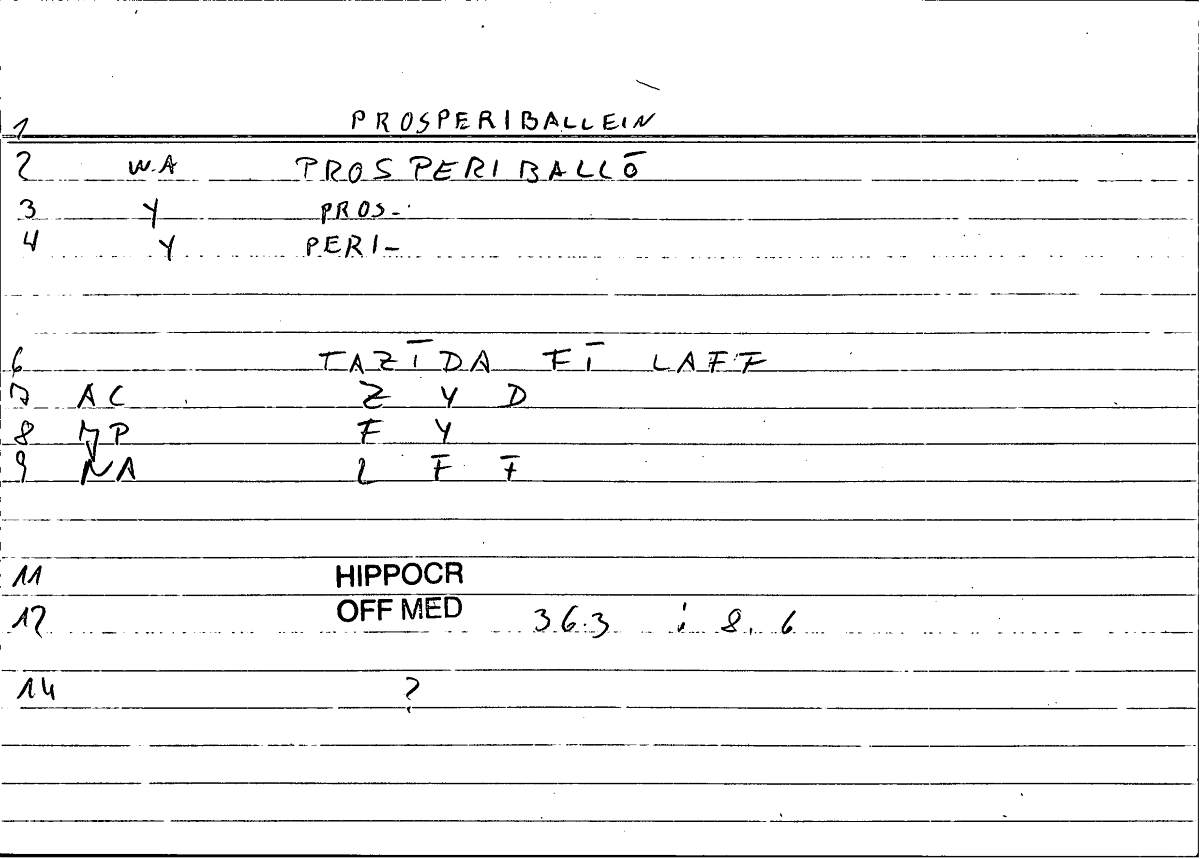 1 PROSPERIBALLEIN
2 W.A PROSPERIBALLŌ
3 Y PROS-
4 Y PERI-
6 TAZĪDA FĪ LAFF
7 AC Z Y D
8 MP F Y
9 NA L F F
11 HIPPOCR
12 OFF MED 36.3 ; 8.6
14 ?